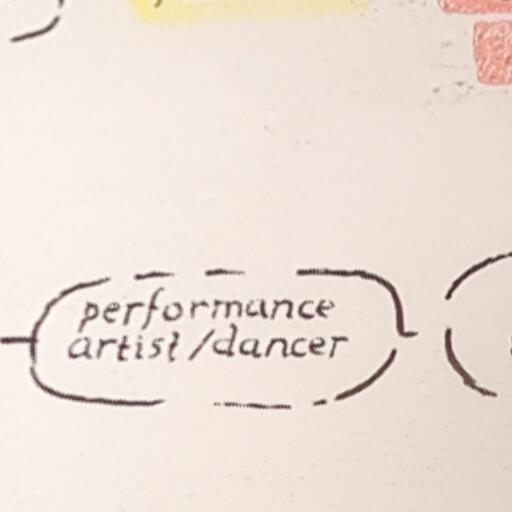 performance
artist/dancer